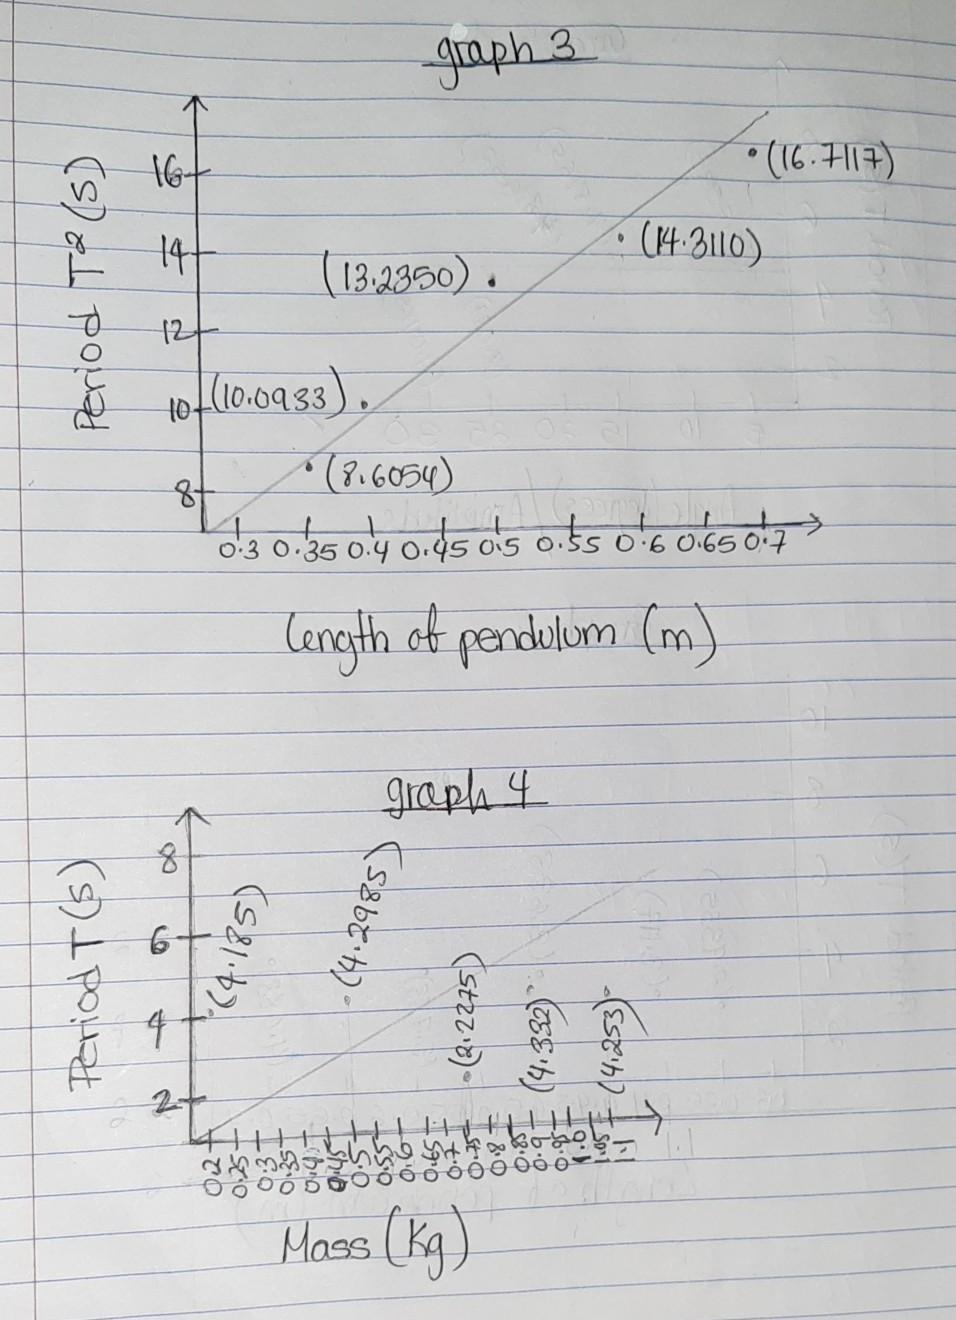 graph 3
Period T² (S)
16
(16.7117)
14
(14.3110)
(13.2350)
12
10
(10.0933)
(8.6054)
8
0.3 0.35 0.4 0.45 0.5 0.55 0.6 0.65 0.7
length of pendulum (m)
graph 4
Period T (S)
8
6
4
2
(4.185)
(4.2985)
(2.2275)
(4.332)
(4.253)
0.2 0.25 0.3 0.35 0.4 0.45 0.5 0.55 0.6 0.65 0.7 0.75 0.8 0.85 0.9 0.95 1.0 1.05 1.1
Mass (Kg)